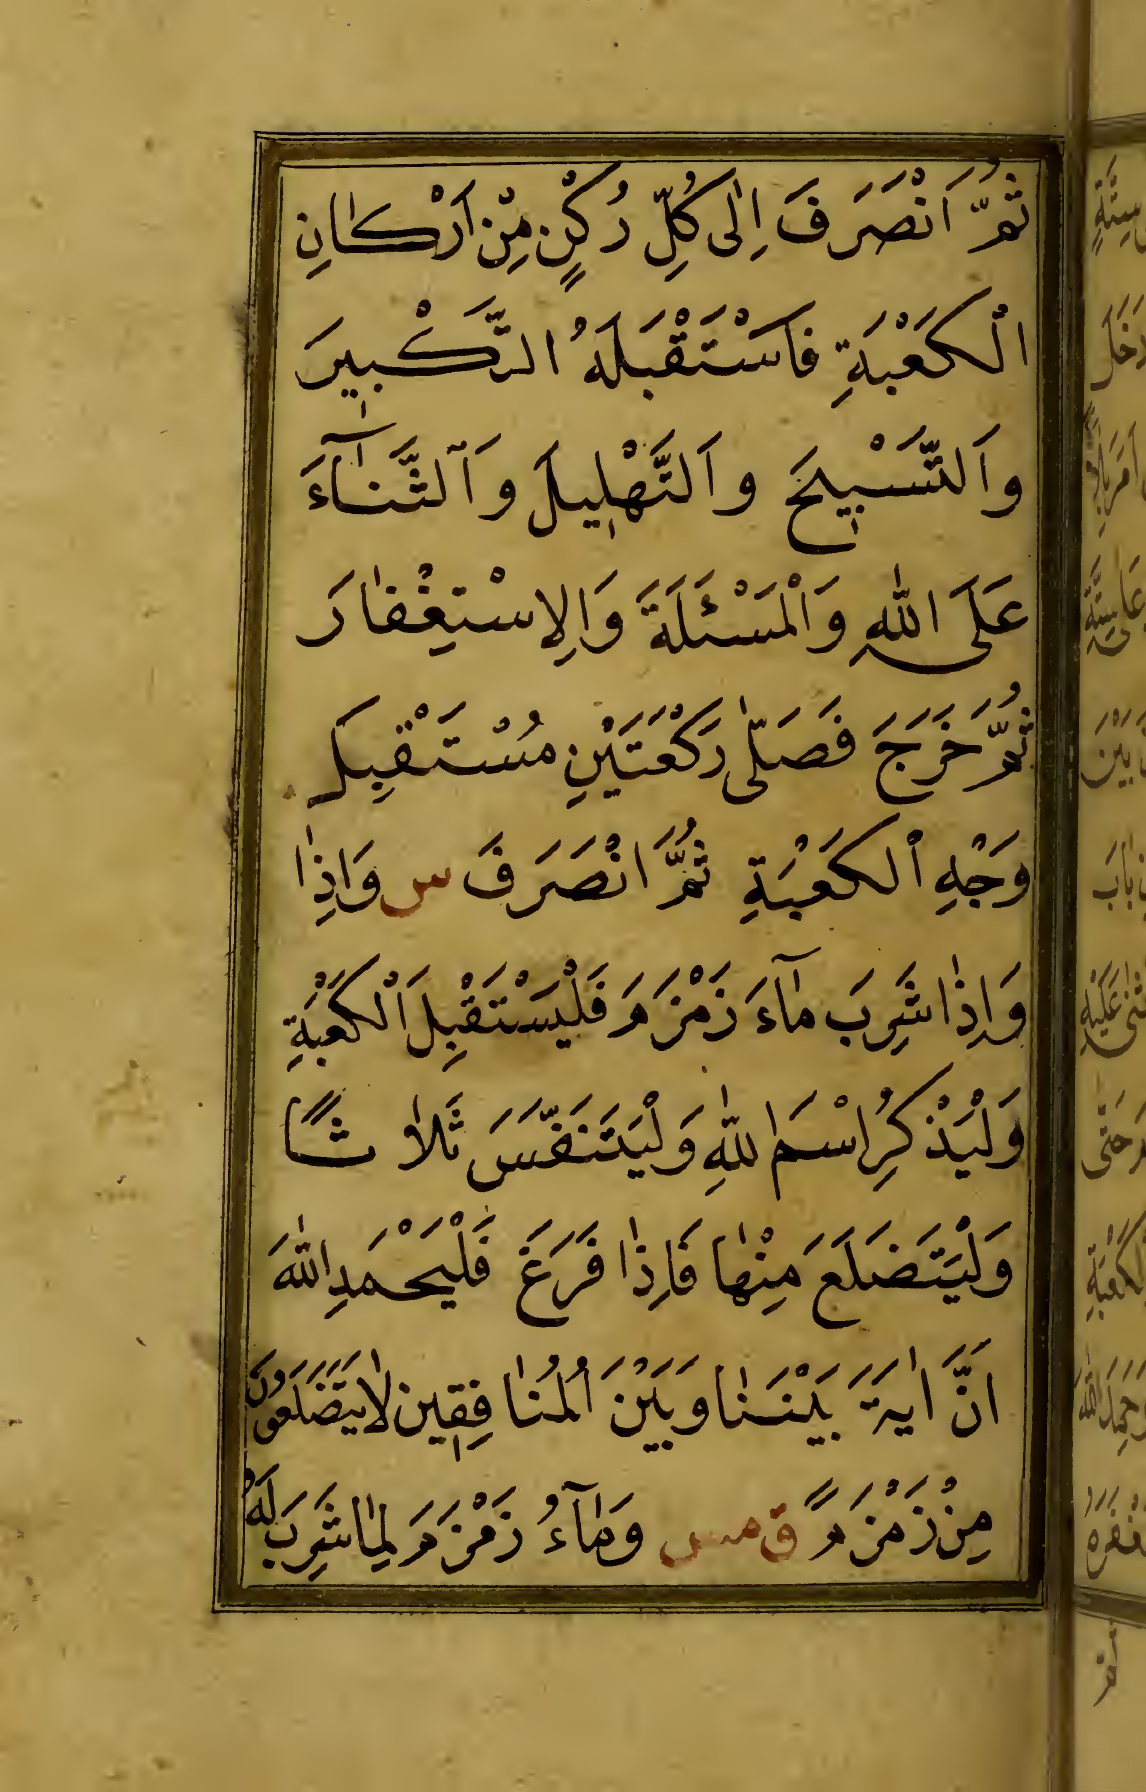 ثُمَّ انْصَرَفَ اِلٰى كُلِّ رُكْنٍ مِّنْ اَرْكَانِ
الْكَعْبَةِ فَاسْتَقْبَلَهُ التَّكْبِيرَ
وَالتَّسْبِيحَ وَالتَّهْلِيلَ وَالثَّنَآءَ
عَلَى اللّٰهِ وَالْمَسْئَلَةَ وَالِاسْتِغْفَارَ
ثُمَّ خَرَجَ فَصَلّٰى رَكْعَتَيْنِ مُسْتَقْبِلَ
وَجْهِ الْكَعْبَةِ ثُمَّ انْصَرَفَ س وَاِذَا
وَاِذَا شَرِبَ مَآءَ زَمْزَمَ فَلْيَسْتَقْبِلَ الْكَعْبَةِ
وَلْيَذْكُرِ اسْمَ اللّٰهِ وَلْيَتَنَفَّسَ ثَلَاثًا
وَلْيَتَضَلَعَ مِنْهَا فَاِذَا فَرَغَ فَلْيَحْمَدِ اللّٰهَ
اَنَّ اٰيَةَ بَيْنَنَا وَبَيْنَ الْمُنَافِقِينَ لَا يَتَضَلَعُونَ
مِنْ زَمْزَمَ ق مس وَمَآءُ زَمْزَمَ لِمَا شَرِبَ لَهُ